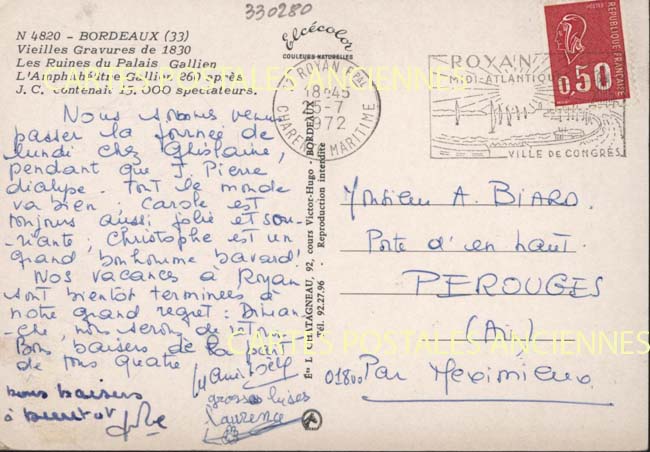 330280
N 4820 - BORDEAUX (33)
Vieilles Gravures de 1830
Les Ruines du Palais Gallien
L'Amphithéâtre Gallien 260 après
J. C. contenait 15.000 spectateurs.
Elcécolor
COULEURS NATURELLES
ROYAN PAL
18H45
25-7
1972
CHARENTE MARITIME
ROYAN
MIDI-ATLANTIQUE
VILLE DE CONGRÈS
REPUBLIQUE FRANÇAISE
POSTES
0,50
Nous sommes venus
passer la journée de
lundi chez Ghislaine,
pendant que J. Pierre
dialyse. Tout le monde
va bien ; Carole est
toujours aussi jolie et sou-
-riante ; Christophe est un
grand bonhomme bavard!
Nos vacances à Royan
sont bientôt terminées à
notre grand regret : Diman-
-che, nous serons de retour.
Bons baisers de la part
de tous quatre
bons baisers
à bientôt
grosses bises
Laurence
Ets L. CHATAGNEAU, 92, cours Victor-Hugo - BORDEAUX
Tél. 92.27.96 - Reproduction interdite
Monsieur A. BIARD.
Porte d'en haut.
PEROUGES
(Ain)
01800 Par Meximieux
CARTES POSTALES ANCIENNES
CARTES POSTALES ANCIENNES